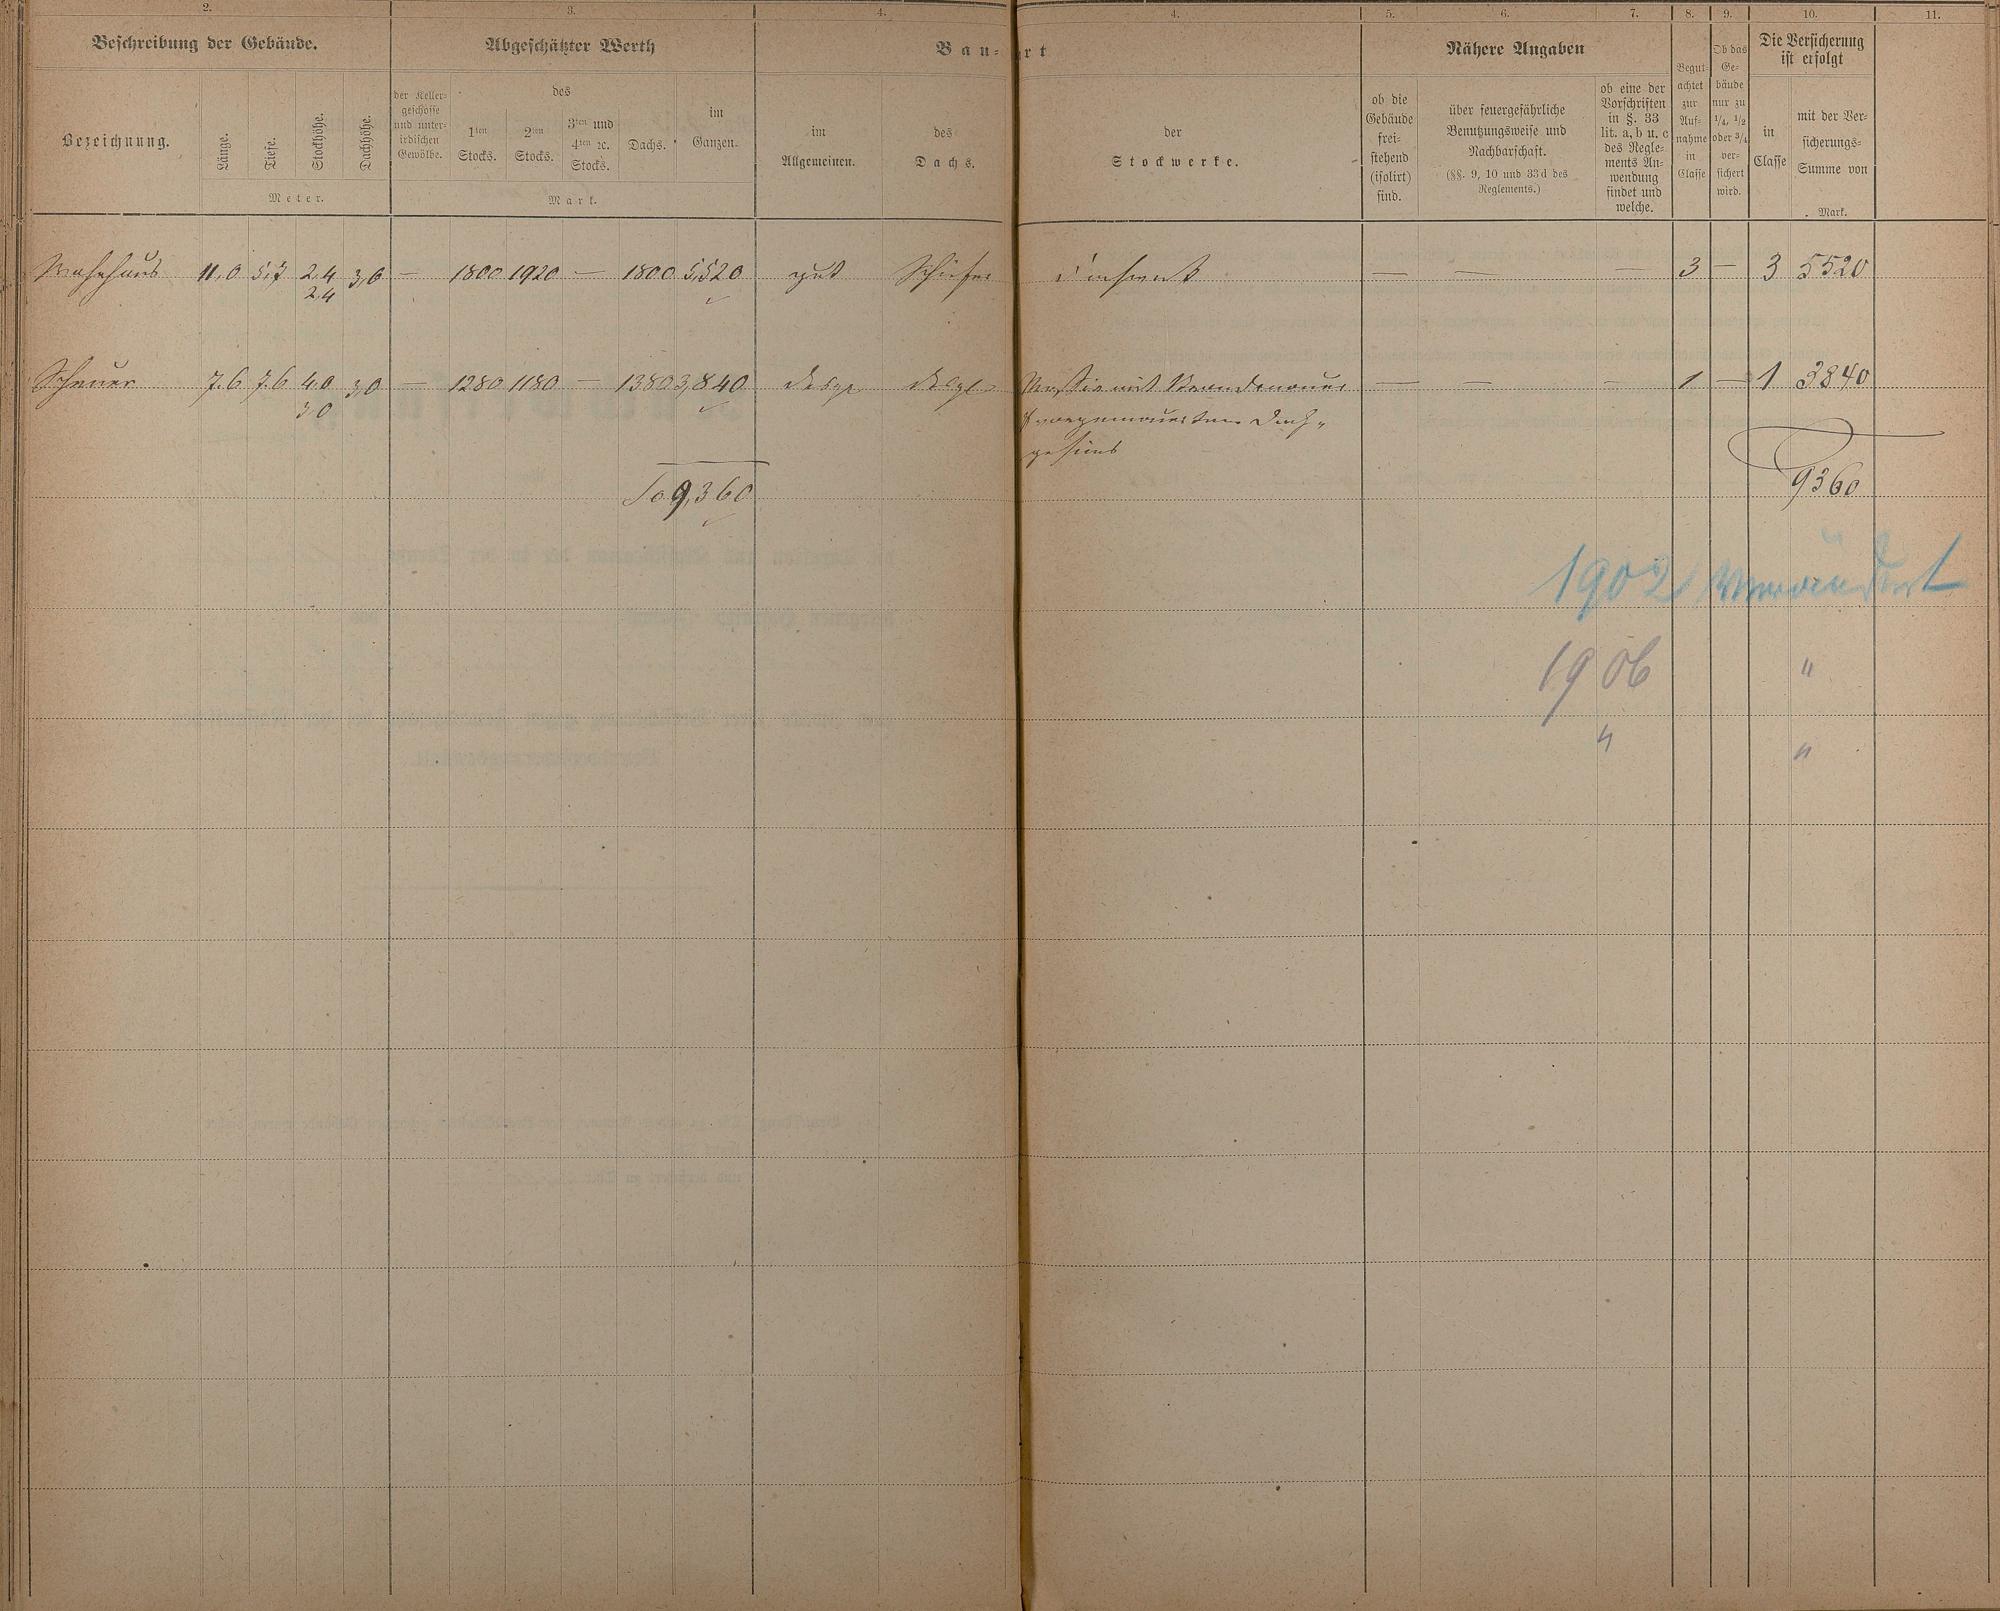 2. 3. 4. 4. 5. 6. 7. 8. 9. 10. 11.
Beschreibung der Gebäude. Abgeschätzter Werth Bau-art Nähere Angaben
Die Versicherung
ist erfolgt
Bezeichnung.
Länge.
Tiefe.
Stockhöhe.
Dachhöhe.
Meter.
der Keller-
geschosse
und unter-
irdischen
Gewölbe.
des
1ten
Stocks.
2ten
Stocks.
3ten und
4ten ꝛc.
Stocks.
Dachs.
im
Ganzen.
Mark.
im
Allgemeinen.
des
Dachs.
der
Stockwerke.
ob die
Gebäude
frei-
stehend
(isolirt)
sind.
über feuergefährliche
Benutzungsweise und
Nachbarschaft.
(§§. 9, 10 und 33d des
Reglements.)
ob eine der
Vorschriften
in §. 33
lit. a, b u. c
des Regle-
ments An-
wendung
findet und
welche.
Begut-
achtet
zur
Auf-
nahme
in
Classe
Ob das
Ge-
bäude
nur zu
1/4, 1/2
oder 3/4
ver-
sichert
wird.
in
Classe
mit der Ver-
sicherungs-
Summe von
Mark.
Wohnhaus 11,0 5,7 2,4 3,0 — 1800 1920 — 1800 5,520 gut Schiefer — — — 3 — 3 5520
2,4
Scheuer 7,6 7,6 4,0 3,0 — 1280 1180 — 1380 3,840 desgl desgl Massiv mit Brandmauer — — — 1 — 1 3840
3,0 Dach-
gesims
Sa 9,360 9360
1902 verändert
1906 "
" "